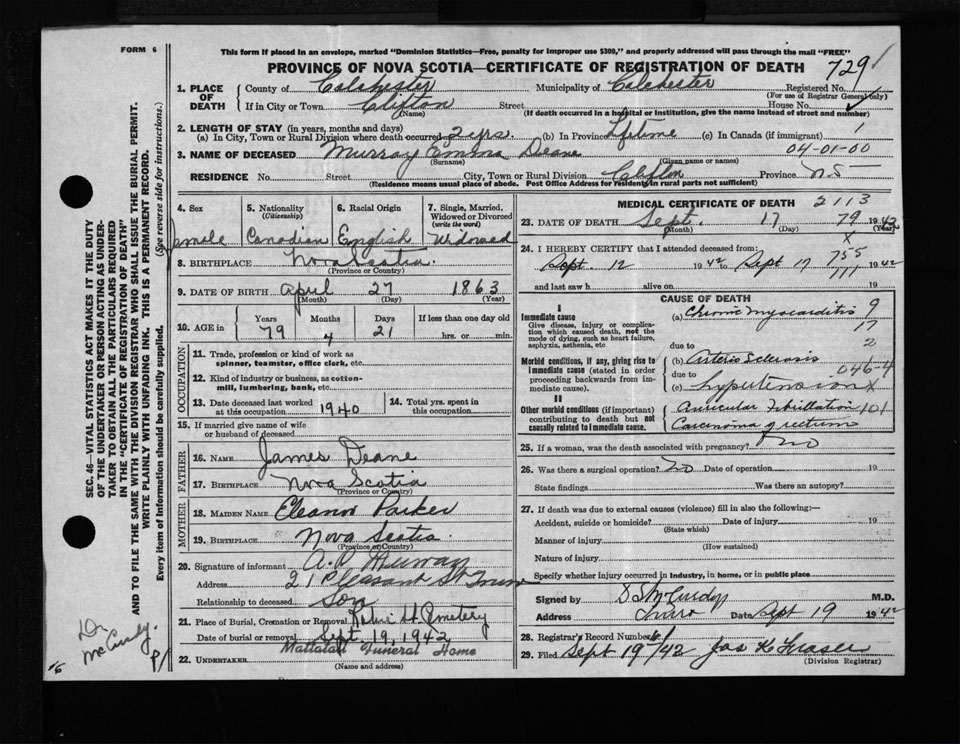 FORM 6
This form if placed in an envelope, marked "Dominion Statistics—Free, penalty for improper use $300," and properly addressed will pass through the mail "FREE"
PROVINCE OF NOVA SCOTIA—CERTIFICATE OF REGISTRATION OF DEATH
729
1. PLACE OF DEATH
County of Colchester Municipality of Colchester Registered No.
(For use of Registrar General only)
If in City or Town Clifton Street House No.
(Name) (If death occurred in a hospital or institution, give the name instead of street and number)
2. LENGTH OF STAY (in years, months and days)
(a) In City, Town or Rural Division where death occurred 2 yrs. (b) In Province Lifetime (c) In Canada (if immigrant) 1
3. NAME OF DECEASED Murray Emma Deane 04-01-00
(Surname) (Given name or names)
RESIDENCE No. Street City, Town or Rural Division Clifton Province N.S
(Residence means usual place of abode. Post Office Address for residents in rural parts not sufficient)
4. Sex 5. Nationality (Citizenship) 6. Racial Origin 7. Single, Married, Widowed or Divorced (write the word)
Female Canadian English Widowed
8. BIRTHPLACE Nova Scotia
(Province or Country)
9. DATE OF BIRTH April 27 1863
(Month) (Day) (Year)
10. AGE in Years Months Days If less than one day old
79 4 21 hrs. or min.
OCCUPATION
11. Trade, profession or kind of work as spinner, teamster, office clerk, etc.
12. Kind of industry or business, as cotton-mill, lumbering, bank, etc.
13. Date deceased last worked at this occupation 1940
14. Total yrs. spent in this occupation
15. If married give name of wife or husband of deceased
FATHER
16. NAME James Deane
17. BIRTHPLACE Nova Scotia
(Province or Country)
MOTHER
18. MAIDEN NAME Eleanor Parker
19. BIRTHPLACE Nova Scotia
(Province or Country)
20. Signature of informant A.D. Murray
Address 21 Pleasant St Truro
Relationship to deceased Son
21. Place of Burial, Cremation or Removal Robie St Cemetery
Date of burial or removal Sept. 19, 1942
22. UNDERTAKER Mattatall Funeral Home
(Name and address)
MEDICAL CERTIFICATE OF DEATH 2113
23. DATE OF DEATH Sept. 17 79 1942
(Month) (Day) (Year)
24. I HEREBY CERTIFY that I attended deceased from: x
Sept. 12 1942 to Sept 17 755 1942
and last saw h alive on 111 19
CAUSE OF DEATH
Immediate cause
Give disease, injury or complication which caused death, not the mode of dying, such as heart failure, asphyxia, asthenia, etc.
(a) Chronic myocarditis 9
17
due to 2
Morbid conditions, if any, giving rise to immediate cause (stated in order proceeding backwards from immediate cause).
(b) Arterio Sclerosis
due to 046-4
(c) hypertension x
II
Other morbid conditions (if important) contributing to death but not causally related to immediate cause.
Auricular Fibrillation 101
Carcenoma of rectum
25. If a woman, was the death associated with pregnancy? no
26. Was there a surgical operation? no Date of operation 19
State findings Was there an autopsy?
27. If death was due to external causes (violence) fill in also the following:—
Accident, suicide or homicide? Date of injury 19
(State which)
Manner of injury
(How sustained)
Nature of injury
Specify whether injury occurred in industry, in home, or in public place
Signed by D S McCurdy M.D.
Address Truro Date Sept 19 1942
28. Registrar's Record Number 61
29. Filed Sept 19/42 Jas K Fraser
(Division Registrar)
SEC. 46—VITAL STATISTICS ACT MAKES IT THE DUTY
OF THE UNDERTAKER OR PERSON ACTING AS UNDER-
TAKER TO OBTAIN ALL THE PARTICULARS REQUIRED
IN THE "CERTIFICATE OF REGISTRATION OF DEATH"
AND TO FILE THE SAME WITH THE DIVISION REGISTRAR WHO SHALL ISSUE THE BURIAL PERMIT.
WRITE PLAINLY WITH UNFADING INK. THIS IS A PERMANENT RECORD.
Every item of Information should be carefully supplied. (See reverse side for instructions.)
Dr
McCurdy.